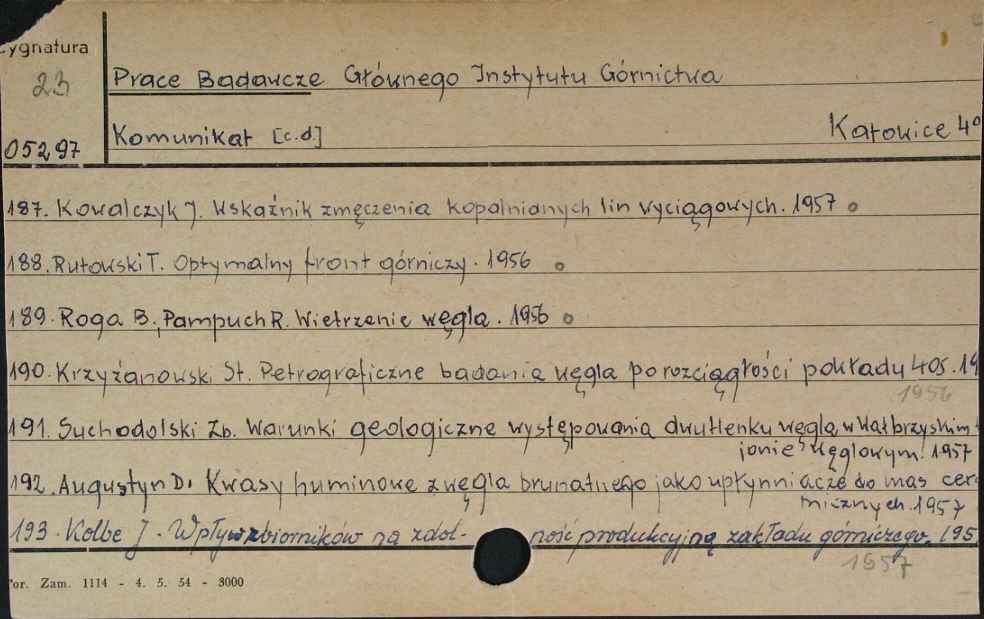 Sygnatura
23
Prace Badawcze Głównego Instytutu Górnictwa
05297
Komunikat [c.d.]
Katowice 4°
187. Kowalczyk J. Wskaźnik zmęczenia kopalnianych lin wyciągowych. 1957
188. Rutowski T. Optymalny front górniczy. 1956
189. Roga B., Pampuch R. Wietrzenie węgla. 1956
190. Krzyżanowski St. Petrograficzne badania węgla po rozciągłości pokładu 405. 19
1956
191. Suchodolski Zb. Warunki geologiczne występowania dwutlenku węgla w Wałbrzyskim
jonie węglowym. 1957
192. Augustyn D. Kwasy huminowe z węgla brunatnego jako upłynniacze do mas cer
micznych. 1957
193. Kolbe J. Wpływ zbiorników na zdol- ność produkcyjną zakładu górniczego. 195
1957
or. Zam. 1114 - 4. 5. 54 - 3000